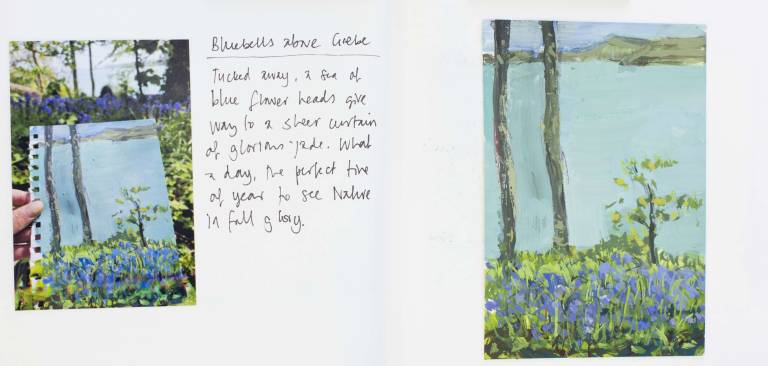 Bluebells above Grebe
Tucked away, a sea of
blue flower heads give
way to a sheer curtain
of glorious jade. What
a day, the perfect time
of year to see Nature
in full glory.